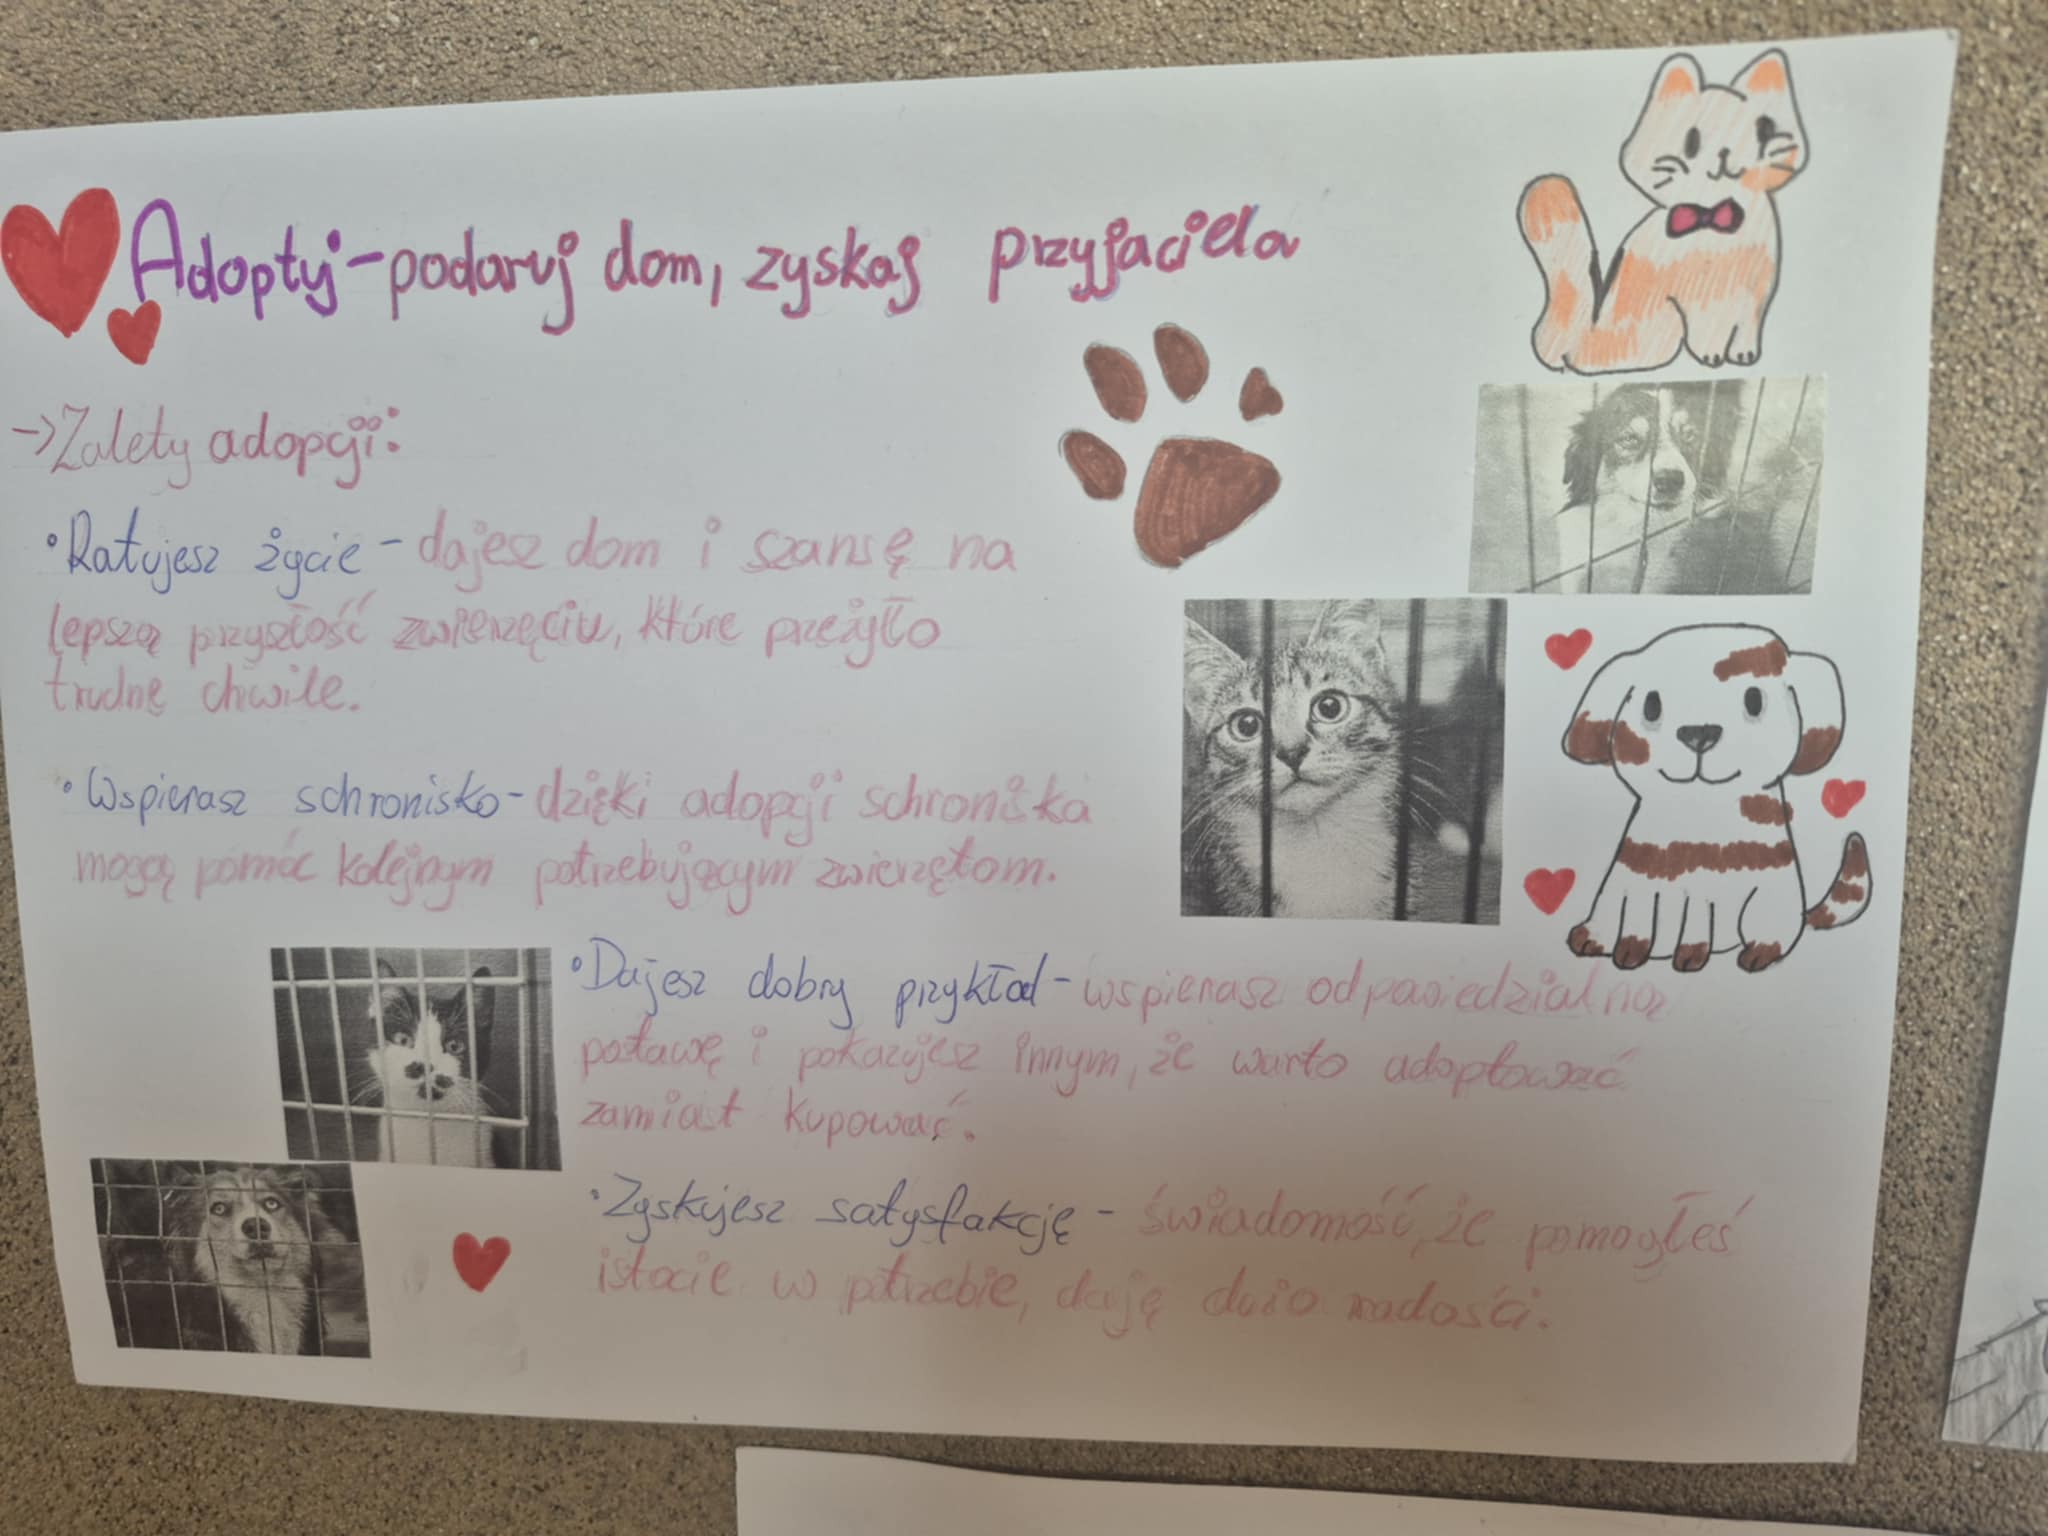 Adoptuj-podaruj dom, zyskaj przyjaciela
->Zalety adopcji:
•Ratujesz życie - dajesz dom i szansę na
lepszą przyszłość zwierzęciu, które przeżyło
trudne chwile.
•Wspierasz schronisko-dzięki adopcji schroniska
mogą pomóc kolejnym potrzebującym zwierzętom.
•Dajesz dobry przykład-wspierasz odpowiedzialną
postawę i pokazujesz innym, że warto adoptować
zamiast kupować.
•Zyskujesz satysfakcję - świadomość, że pomogłeś
istocie w potrzebie, daję dużo radości.